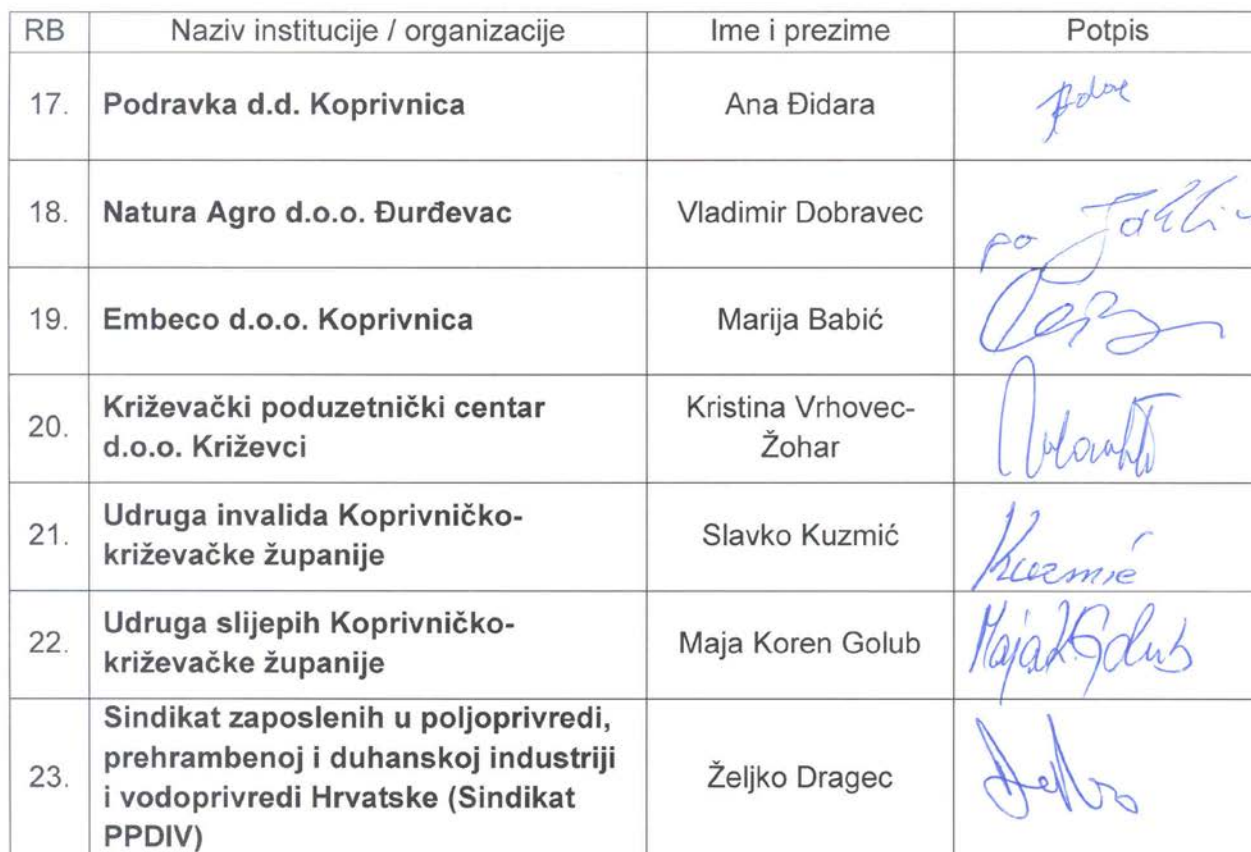 RB Naziv institucije / organizacije Ime i prezime Potpis
17. Podravka d.d. Koprivnica Ana Đidara
18. Natura Agro d.o.o. Đurđevac Vladimir Dobravec po
19. Embeco d.o.o. Koprivnica Marija Babić
20. Križevački poduzetnički centar
d.o.o. Križevci
Kristina Vrhovec-
Žohar
21. Udruga invalida Koprivničko-
križevačke županije
Slavko Kuzmić Kuzmić
22. Udruga slijepih Koprivničko-
križevačke županije
Maja Koren Golub Maja K.Golub
23. Sindikat zaposlenih u poljoprivredi,
prehrambenoj i duhanskoj industriji
i vodoprivredi Hrvatske (Sindikat
PPDIV)
Željko Dragec